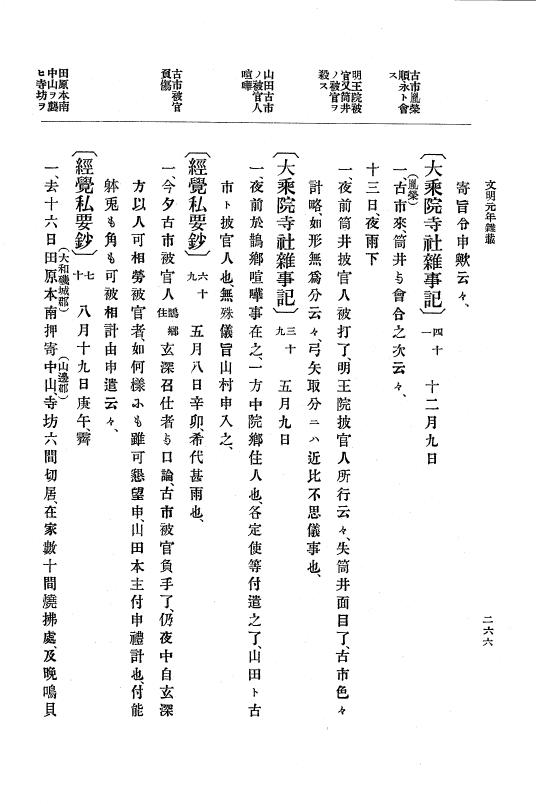 文明元年雜載
二六六
古市胤榮
順永ト會
ス
明王院被
官又筒井
ノ被官ヲ
殺ス
山田古市
ノ被官人
喧嘩
古市被官
負傷
田原本南
中山ヲ襲
ヒ寺坊ヲ
寄旨令申歟云々、
〔大乘院寺社雜事記〕四十一 十二月九日
一、古市(胤榮)來、筒井与會合之次云々、
十三日、夜雨下
一、夜前筒井披官人被打了、明王院披官人所行云々、失筒井面目了、古市色々
計略、如形無爲分云々、弓矢取分ニハ近比不思儀事也、
〔大乘院寺社雜事記〕三十九 五月九日
一、夜前於鵲鄕喧嘩事在之、一方中院鄕住人也、各定使等付遣之了、山田ト古
市ト披官人也、無殊儀旨山村申入之、
〔經覺私要鈔〕六十九 五月八日辛卯、希代甚雨也、
一、今夕古市被官人鵲鄕住玄深召仕者与口論、古市被官負手了、仍夜中自玄深
方以人可相勞被官者、如何樣ニも雖可懇望申、山田本主付申禮計也、付能
躰兎も角も可被相計由申遣云々、
〔經覺私要鈔〕七十 八月十九日庚午、霽
一、去十六日田原本南(大和磯城郡)押寄中山(山邊郡)寺坊六間切居、在家數十間燒拂處、及晩鳴貝